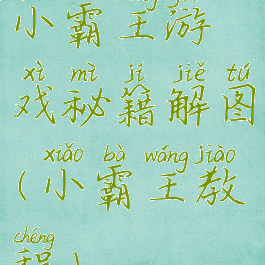 小霸王游
xì mì jí jiě tú
戏秘籍解图
xiǎo bà wáng jiào
(小霸王教
chéng
程)